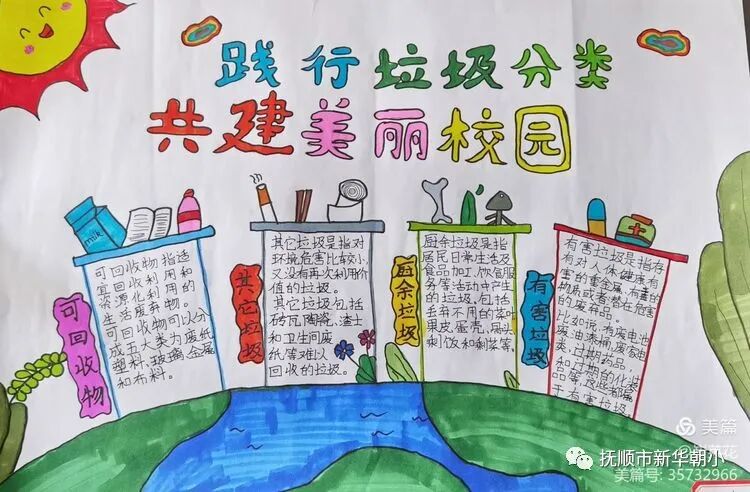 践行垃圾分类
共建美丽校园
milk
可回收物
可回收物指适
宜回收利用和
资源化利用的
生活废弃物。
可回收物可以分
成五大类为废纸
塑料、玻璃、金属
和布料。
其它垃圾
其它垃圾是指对
环境危害比较小,
又没有再次利用价
值的垃圾。
其它垃圾包括
砖瓦陶瓷、渣土
和卫生间废
纸等难以
回收的垃圾。
厨余垃圾
厨余垃圾是指
居民日常生活及
食品加工、饮食服
务等活动中产生
的垃圾,包括
丢弃不用的菜叶
果皮、蛋壳、
剩饭和剩菜等。
有害垃圾
有害垃圾是指存
有对人体健康有
害的重金属、有毒的
物质或者潜在危害
的废弃品。
比如说,有废电池
废油漆桶、废灯
类、过期药品,
和力期的化妆
品等,及
于有害垃圾
美篇
抚顺市新华朝小
美篇号: 35732966